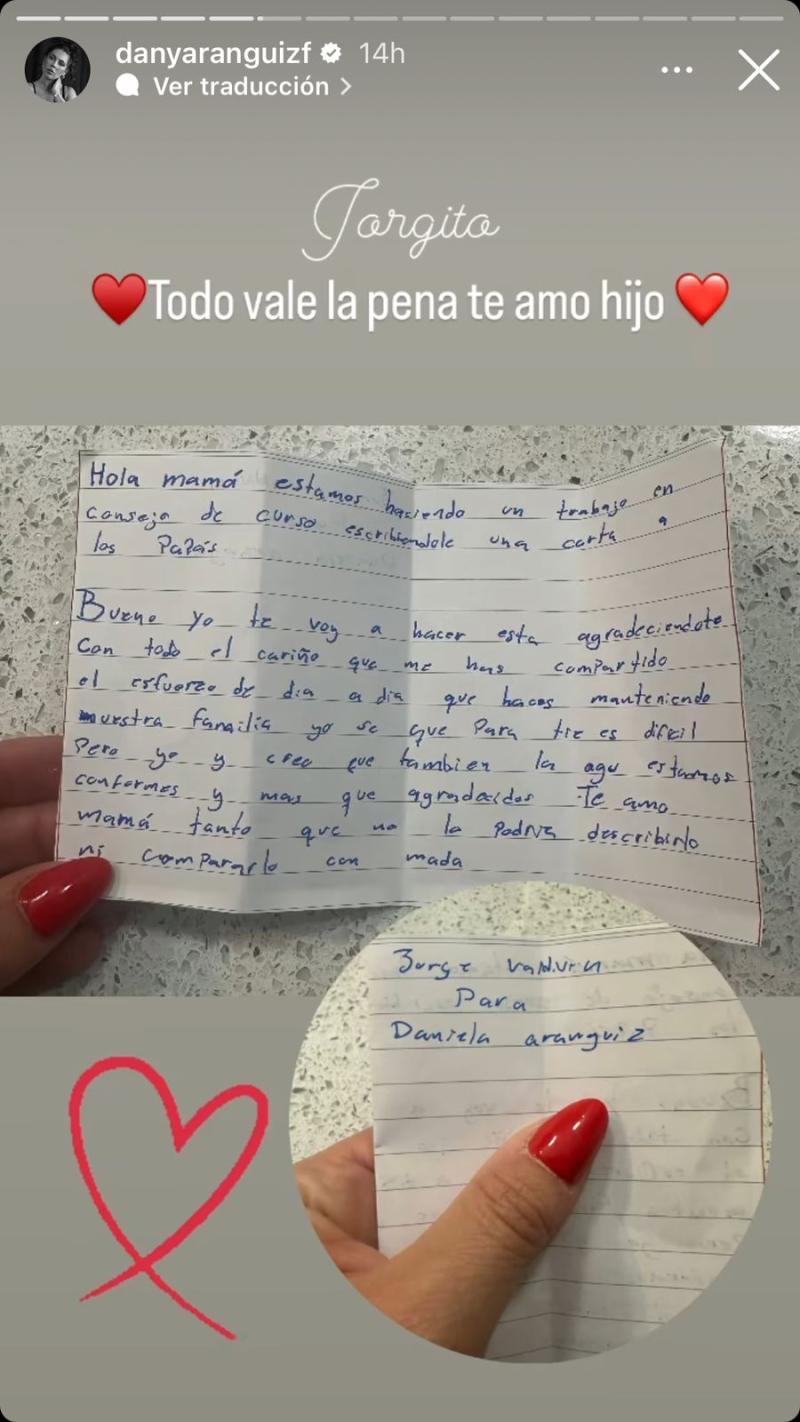 danyaranguizf 14h
Ver traducción
Jorgito
Todo vale la pena te amo hijo
Hola mamá estamos haciendo un trabajo en
consejo de curso escribiendole una carta a
los Papás
Bueno yo te voy a hacer esta agradeciendote
Con todo el cariño que me has compartido
el esfuerzo de dia a dia que haces manteniendo
nuestra familia yo se que Para tie es dificil
Pero yo y creo que tambien la agu estamos
conformes y mas que agradecidos Te amo
mamá tanto que no lo Podria describirlo
ni compararlo con nada
Jorge valdivia
Para
Daniela aranguiz